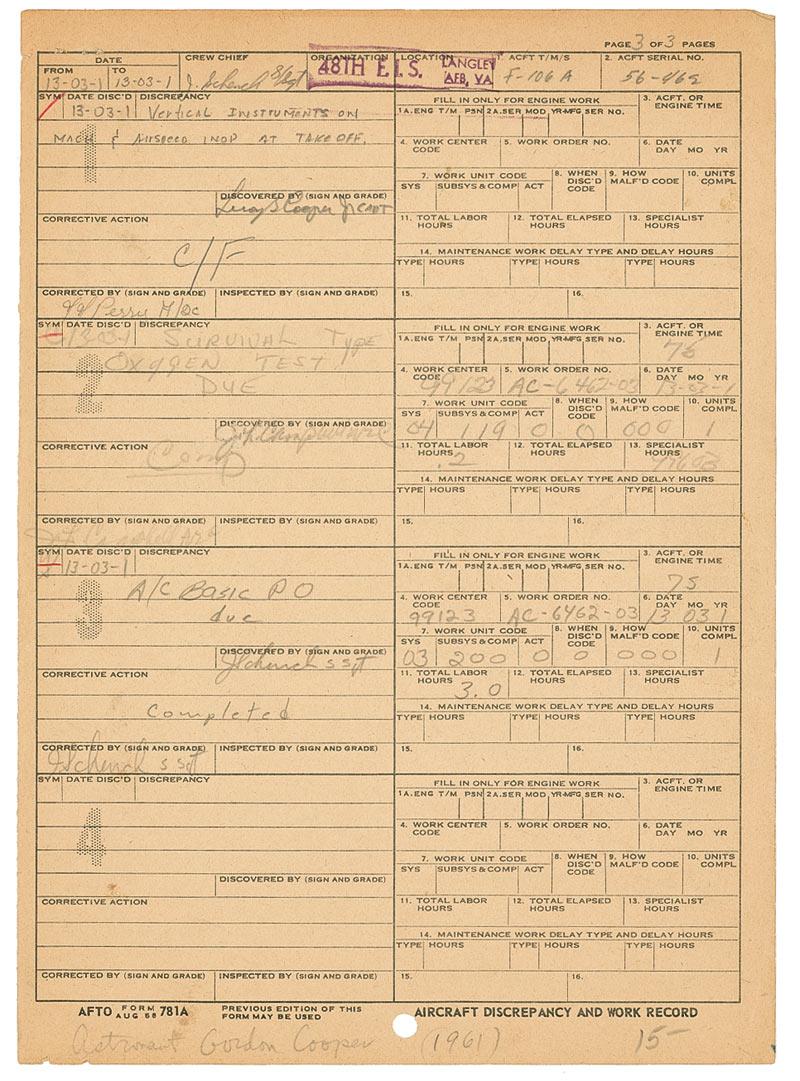 PAGE 3 OF 3 PAGES
DATE
FROM 13-03-1 TO 13-03-1
CREW CHIEF J. Schenck S/Sgt
ORGANIZATION 48TH F.I.S.
LOCATION LANGLEY AFB, VA
ACFT T/M/S F-106A
2. ACFT SERIAL NO. 56-462
SYM DATE DISC'D DISCREPANCY
13-03-1 VERTICAL INSTRUMENTS ON
MACH & AIRSPEED INOP AT TAKE OFF.
1
DISCOVERED BY (SIGN AND GRADE)
Leroy G Cooper Jr CAPT
CORRECTIVE ACTION
C/F
CORRECTED BY (SIGN AND GRADE) INSPECTED BY (SIGN AND GRADE)
Perry
FILL IN ONLY FOR ENGINE WORK
1A. ENG T/M PSN 2A. SER MOD YR-MFG SER NO.
3. ACFT. OR ENGINE TIME
4. WORK CENTER CODE 5. WORK ORDER NO. 6. DATE DAY MO YR
7. WORK UNIT CODE
SYS SUBSYS & COMP ACT
8. WHEN DISC'D CODE 9. HOW MALF'D CODE 10. UNITS COMPL
11. TOTAL LABOR HOURS 12. TOTAL ELAPSED HOURS 13. SPECIALIST HOURS
14. MAINTENANCE WORK DELAY TYPE AND DELAY HOURS
TYPE HOURS TYPE HOURS TYPE HOURS
15. 16.
SYM DATE DISC'D DISCREPANCY
13-03-1 SURVIVAL TYPE
OXYGEN TEST
DUE
2
DISCOVERED BY (SIGN AND GRADE)
CORRECTIVE ACTION
Comp
CORRECTED BY (SIGN AND GRADE) INSPECTED BY (SIGN AND GRADE)
Campbell
FILL IN ONLY FOR ENGINE WORK
1A. ENG T/M PSN 2A. SER MOD YR-MFG SER NO.
3. ACFT. OR ENGINE TIME 75
4. WORK CENTER CODE 99123 5. WORK ORDER NO. AC-6462-03 6. DATE DAY MO YR 13-03-1
7. WORK UNIT CODE
SYS 04 SUBSYS & COMP 119 ACT 0
8. WHEN DISC'D CODE 0 9. HOW MALF'D CODE 000 10. UNITS COMPL 1
11. TOTAL LABOR HOURS .2 12. TOTAL ELAPSED HOURS 13. SPECIALIST HOURS
14. MAINTENANCE WORK DELAY TYPE AND DELAY HOURS
TYPE HOURS TYPE HOURS TYPE HOURS
15. 16.
SYM DATE DISC'D DISCREPANCY
13-03-1
A/C BASIC P O
due
3
DISCOVERED BY (SIGN AND GRADE)
J Schenck s sgt
CORRECTIVE ACTION
Completed
CORRECTED BY (SIGN AND GRADE) INSPECTED BY (SIGN AND GRADE)
J Schenck s sgt
FILL IN ONLY FOR ENGINE WORK
1A. ENG T/M PSN 2A. SER MOD YR-MFG SER NO.
3. ACFT. OR ENGINE TIME 75
4. WORK CENTER CODE 99123 5. WORK ORDER NO. AC-6462-03 6. DATE DAY MO YR 13 03 1
7. WORK UNIT CODE
SYS 03 SUBSYS & COMP 200 ACT 0
8. WHEN DISC'D CODE 0 9. HOW MALF'D CODE 000 10. UNITS COMPL 1
11. TOTAL LABOR HOURS 3.0 12. TOTAL ELAPSED HOURS 13. SPECIALIST HOURS
14. MAINTENANCE WORK DELAY TYPE AND DELAY HOURS
TYPE HOURS TYPE HOURS TYPE HOURS
15. 16.
SYM DATE DISC'D DISCREPANCY
4
DISCOVERED BY (SIGN AND GRADE)
CORRECTIVE ACTION
CORRECTED BY (SIGN AND GRADE) INSPECTED BY (SIGN AND GRADE)
FILL IN ONLY FOR ENGINE WORK
1A. ENG T/M PSN 2A. SER MOD YR-MFG SER NO.
3. ACFT. OR ENGINE TIME
4. WORK CENTER CODE 5. WORK ORDER NO. 6. DATE DAY MO YR
7. WORK UNIT CODE
SYS SUBSYS & COMP ACT
8. WHEN DISC'D CODE 9. HOW MALF'D CODE 10. UNITS COMPL
11. TOTAL LABOR HOURS 12. TOTAL ELAPSED HOURS 13. SPECIALIST HOURS
14. MAINTENANCE WORK DELAY TYPE AND DELAY HOURS
TYPE HOURS TYPE HOURS TYPE HOURS
15. 16.
AFTO FORM AUG 58 781A PREVIOUS EDITION OF THIS FORM MAY BE USED AIRCRAFT DISCREPANCY AND WORK RECORD
Astronaut Gordon Cooper (1961) 15-